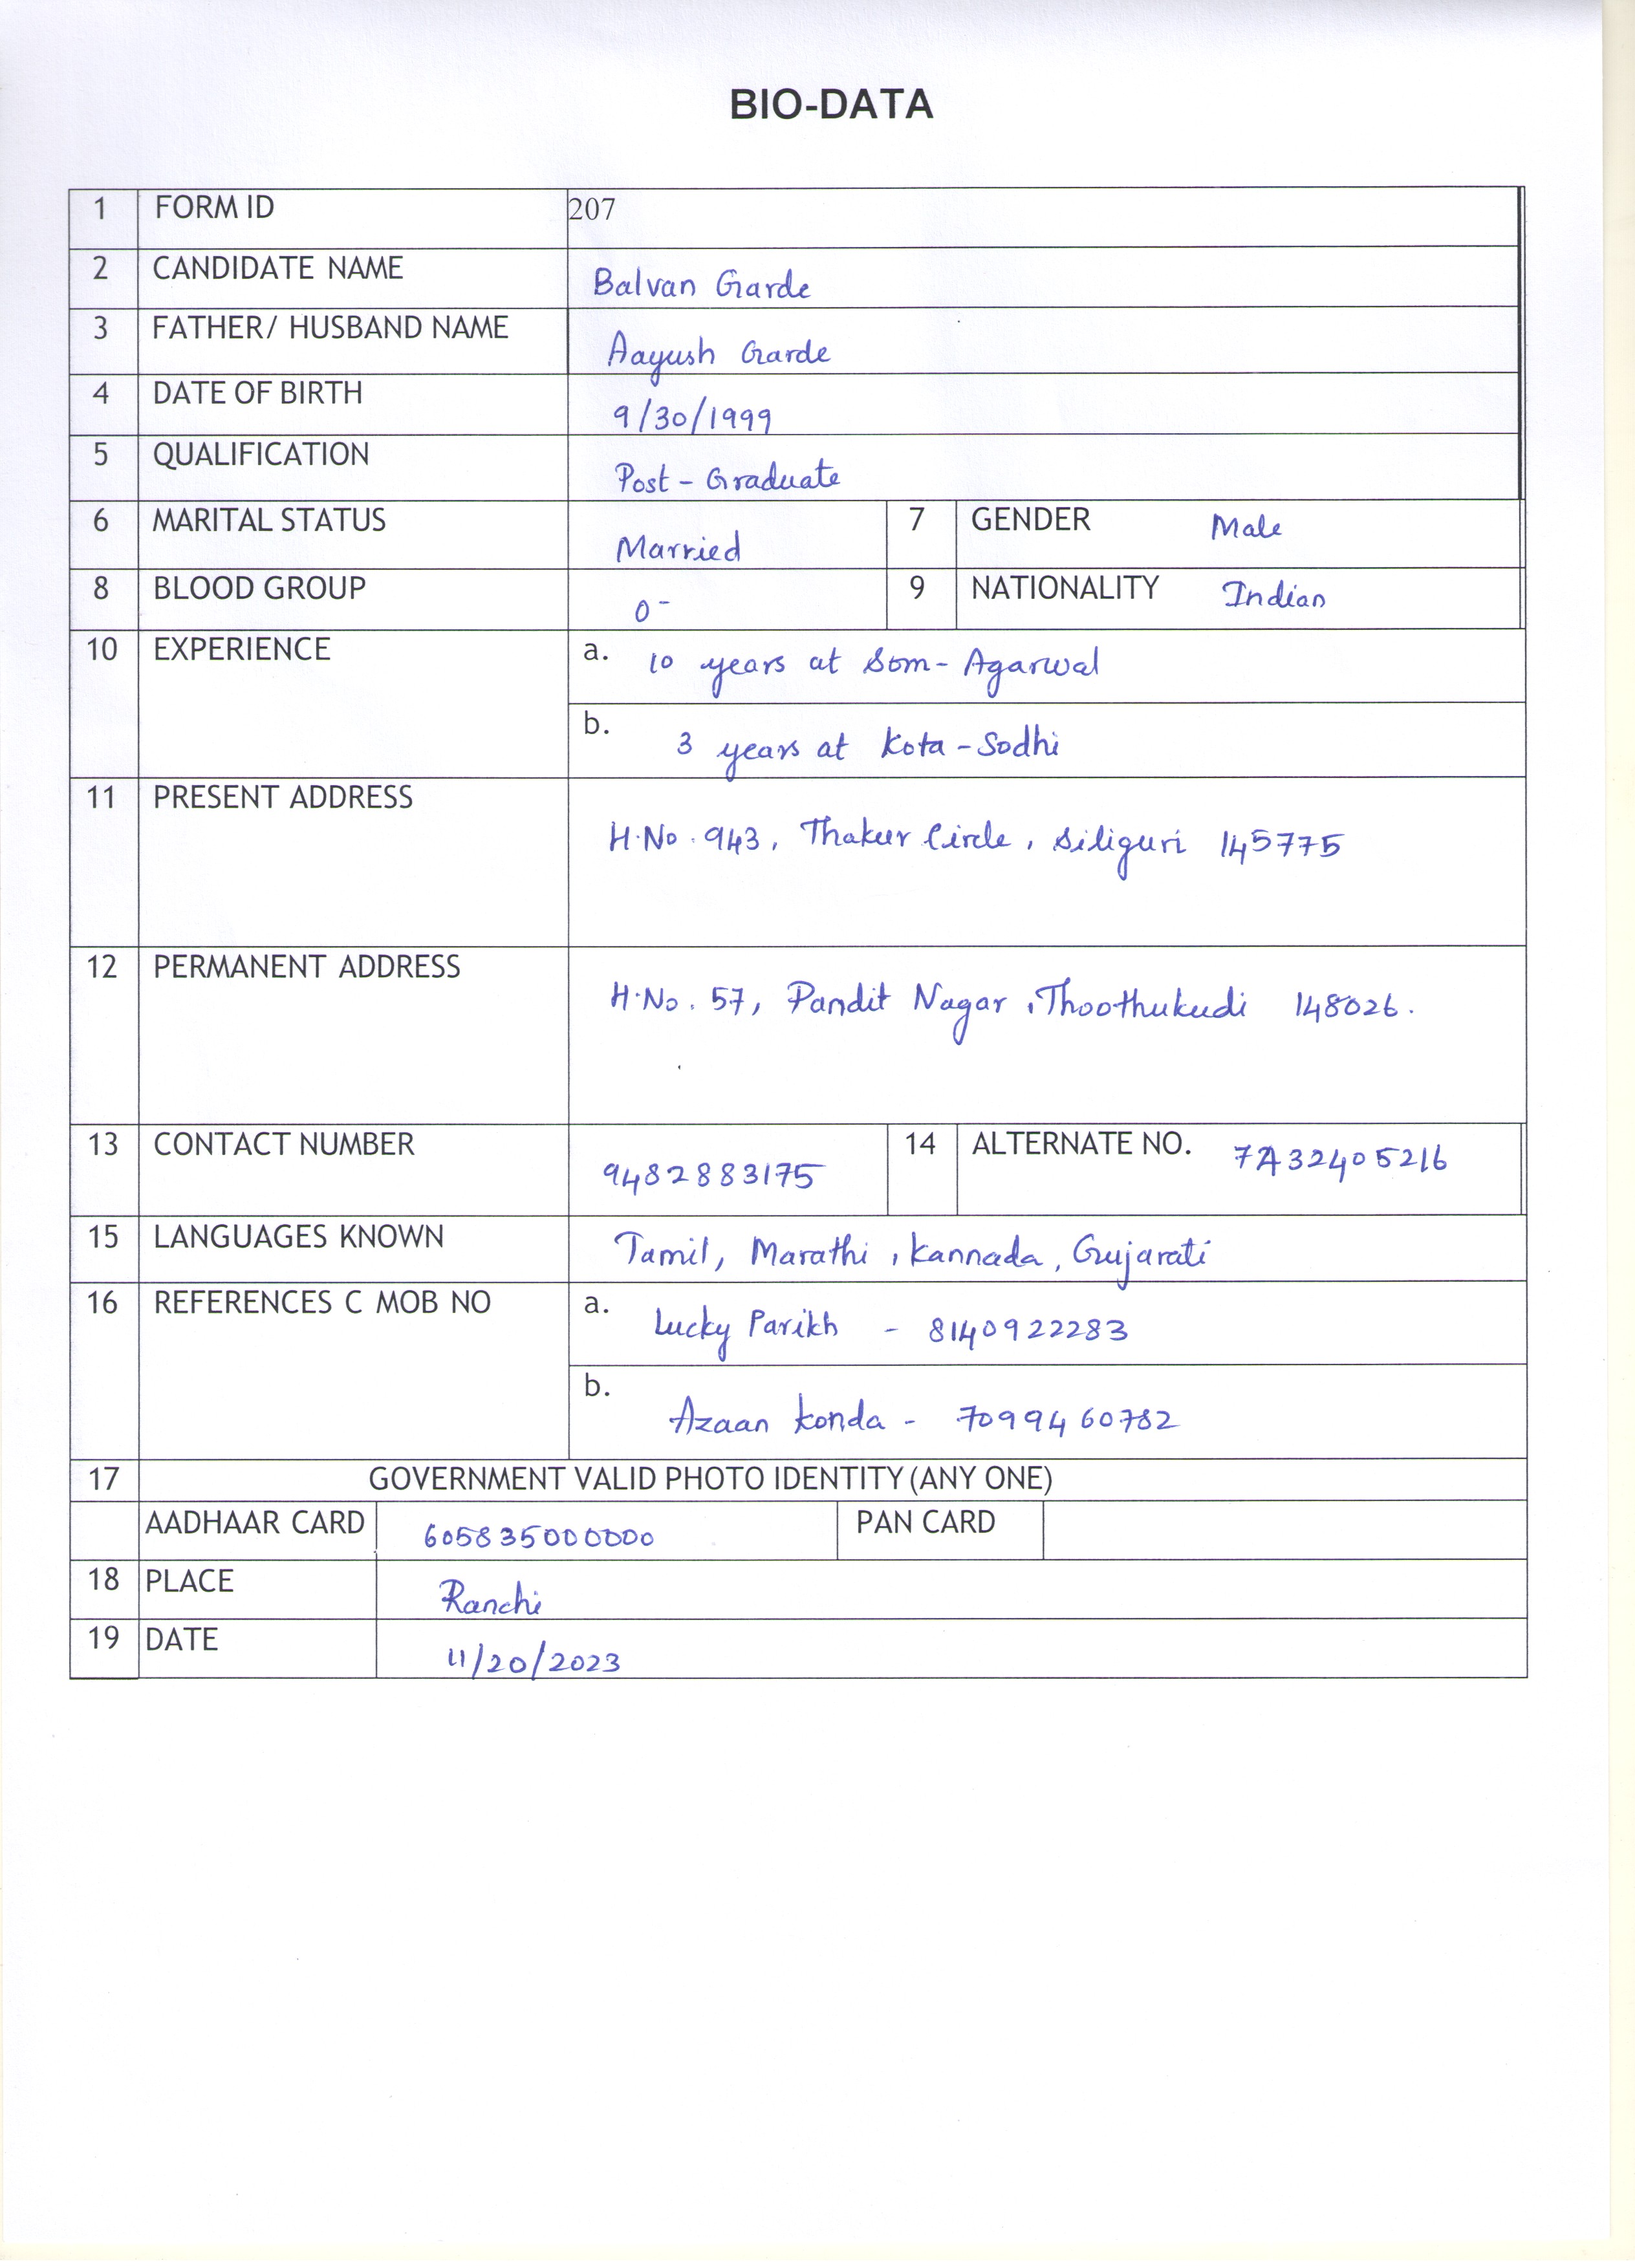 BIO-DATA
1 FORM ID 207
2 CANDIDATE NAME Balvan Garde
3 FATHER/ HUSBAND NAME Aayush Garde
4 DATE OF BIRTH 9/30/1999
5 QUALIFICATION Post-Graduate
6 MARITAL STATUS Married 7 GENDER Male
8 BLOOD GROUP O- 9 NATIONALITY Indian
10 EXPERIENCE a. 10 years at Som-Agarwal
b. 3 years at Kota-Sodhi
11 PRESENT ADDRESS H.No. 943, Thakur Circle, Siliguri 145775
12 PERMANENT ADDRESS H.No. 57, Pandit Nagar, Thoothukudi 148026.
13 CONTACT NUMBER 9482883175 14 ALTERNATE NO.
15 LANGUAGES KNOWN Tamil, Marathi, Kannada, Gujarati
16 REFERENCES C MOB NO a. Lucky Parikh - 8140922283
b. Azaan Konda - 7099460782
17 GOVERNMENT VALID PHOTO IDENTITY (ANY ONE)
AADHAAR CARD 605835000000 PAN CARD
18 PLACE Ranchi
19 DATE 11/20/2023